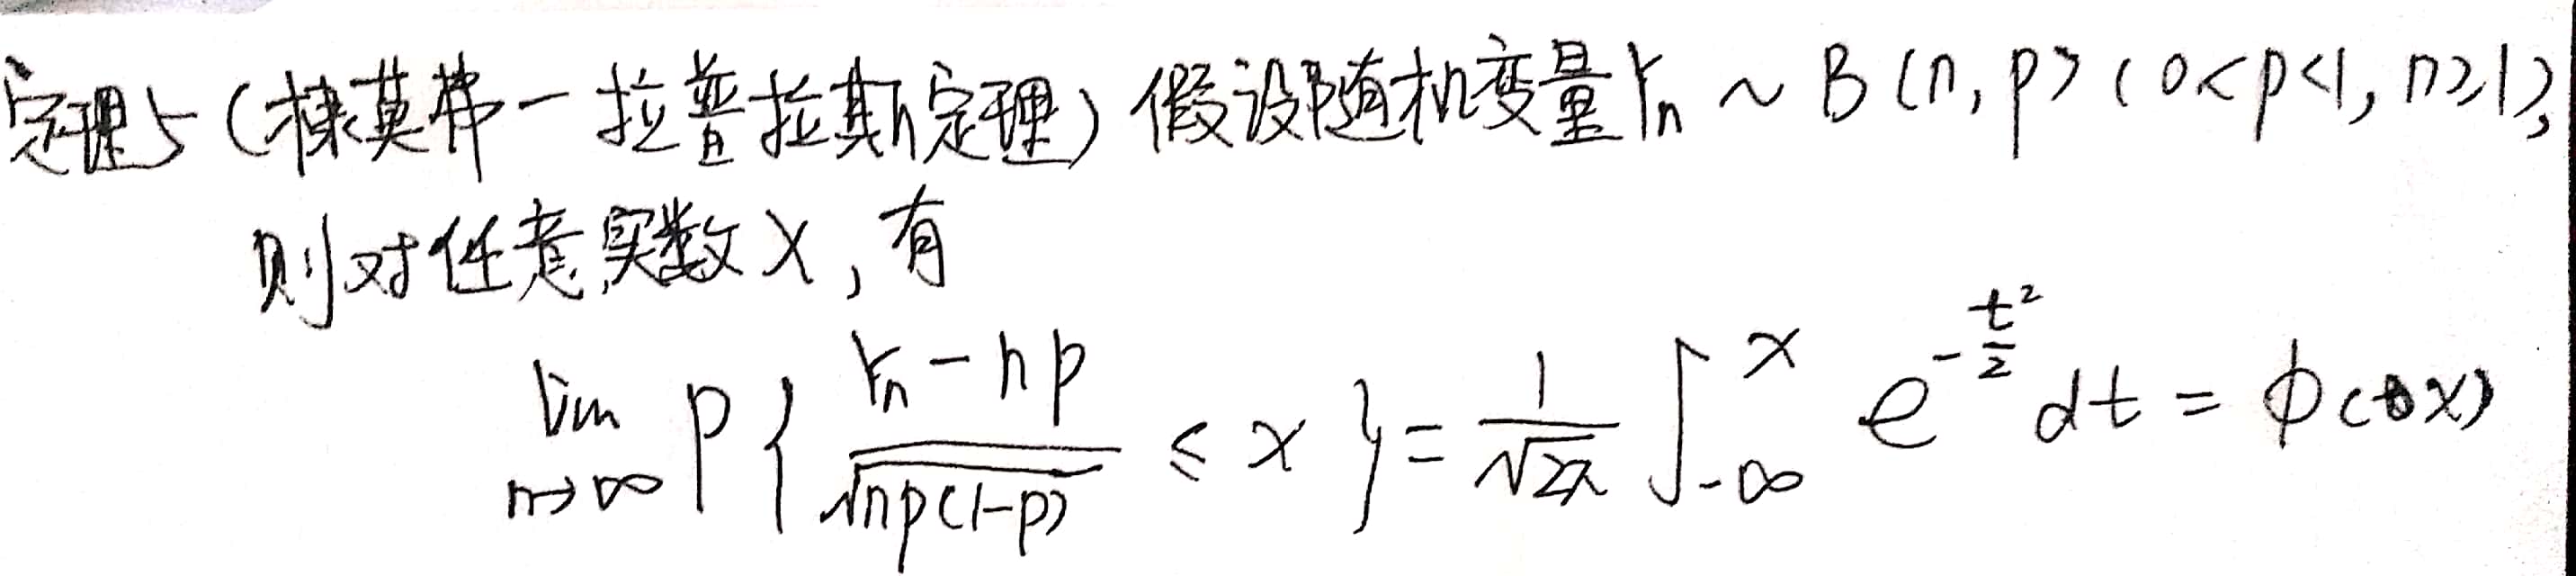 定理5 (棣莫弗-拉普拉斯定理) 假设随机变量Yₙ ~ B(n, p) (0<p<1, n≥1),
则对任意实数x, 有
lim_{n→∞} P{ (Yₙ - np)/√(np(1-p)) ≤ x } = 1/√(2π) ∫_{-∞}^{x} e^{-t²/2} dt = Φ(x)